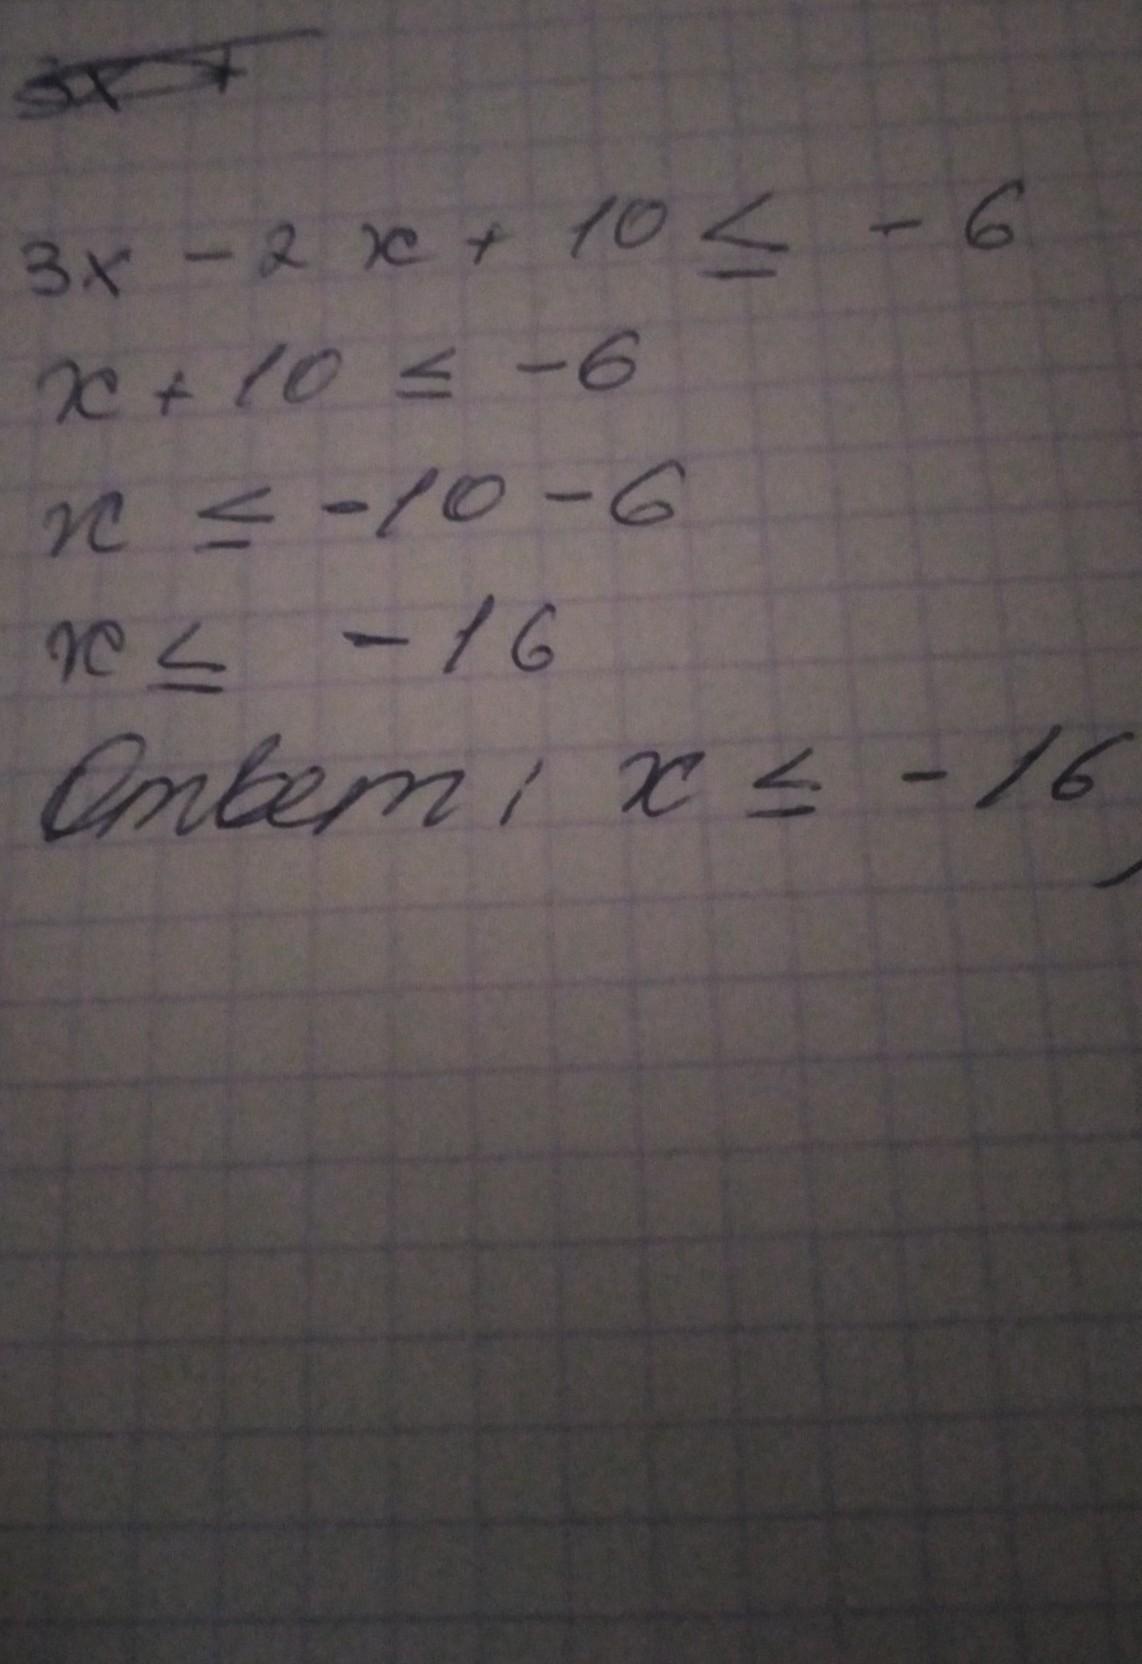 3x - 2x + 10 ≤ - 6
x + 10 ≤ -6
x ≤ -10 - 6
x ≤ - 16
Ответ: x ≤ - 16